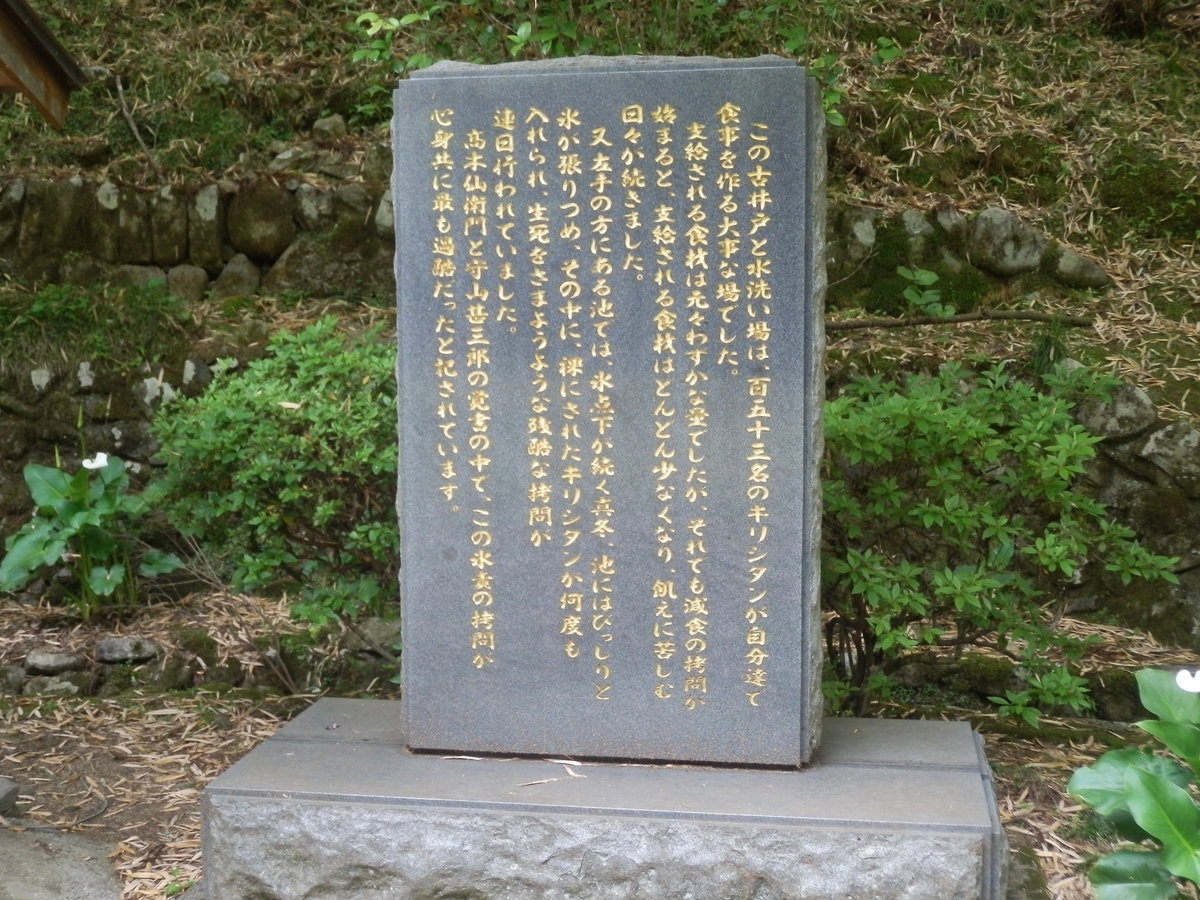 この古井戸と水洗い場は、百五十三名のキリシタンが自分達で
食事を作る大事な場でした。
支給される食材は元々わずかな量でしたが、それでも減食の拷問が
始まると、支給される食材はどんどん少なくなり、飢えに苦しむ
日々が続きました。
又左手の方にある池では、氷点下が続く真冬、池にはびっしりと
氷が張りつめ、その中に、裸にされたキリシタンが何度も
入れられ、生死をさまようような残酷な拷問が
連日行われていました。
高木仙衛門と守山甚三郎の覚書の中で、この氷責の拷問が
心身共に最も過酷だったと記されています。